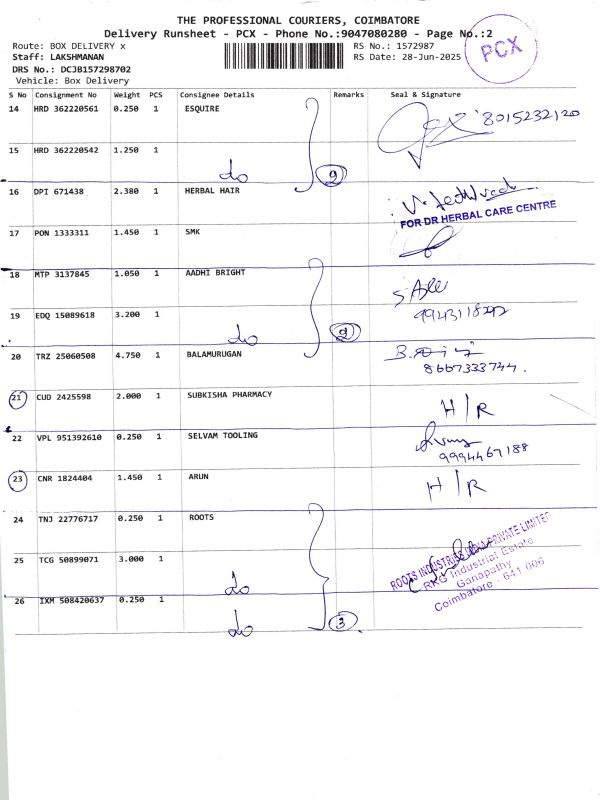 THE PROFESSIONAL COURIERS, COIMBATORE
Delivery Runsheet - PCX - Phone No.:9047080280 - Page No.:2
Route: BOX DELIVERY x RS No.: 1572987
Staff: LAKSHMANAN RS Date: 28-Jun-2025
DRS No.: DCJB157298702
Vehicle: Box Delivery
PCX
S No Consignment No Weight PCS Consignee Details Remarks Seal & Signature
14 HRD 362220561 0.250 1 ESQUIRE 8015232120
15 HRD 362220542 1.250 1 do
16 DPI 671438 2.380 1 HERBAL HAIR
FOR DR HERBAL CARE CENTRE
17 PON 1333311 1.450 1 SMK
18 MTP 3137845 1.050 1 AADHI BRIGHT
19 EDQ 15089618 3.200 1 do 2
20 TRZ 25060508 4.750 1 BALAMURUGAN
8667333744.
21 CUD 2425598 2.000 1 SUBKISHA PHARMACY H/R
22 VPL 951392610 0.250 1 SELVAM TOOLING
9994467188
23 CNR 1824404 1.450 1 ARUN H/R
24 TNJ 22776717 0.250 1 ROOTS
25 TCG 50899071 3.000 1 do
ROOTS INDUSTRIES INDIA PRIVATE LIMITED
RKG Industrial Estate
Ganapathy
Coimbatore - 641 006
26 IXM 508420637 0.250 1 do 3